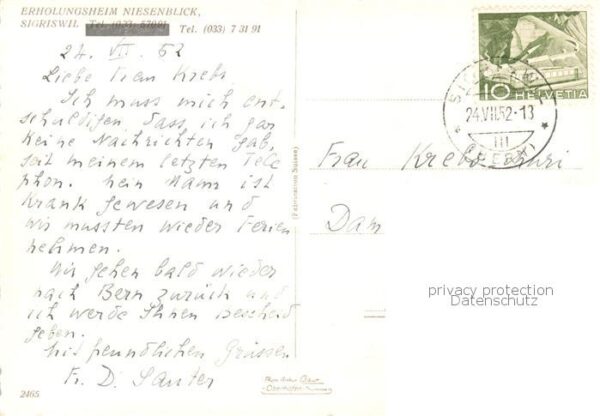 ERHOLUNGSHEIM NIESENBLICK,
SIGRISWIL Tel. (033) 57091 Tel. (033) 7 31 91
24. VII. 52
Liebe Frau Krebs,
Ich muss mich ent-
schuldigen dass ich gar
keine Nachrichten gab,
seit meinem letzten Tele
phon. Mein Mann ist
krank gewesen und
wir mussten wieder Ferien
nehmen.
Wir gehen bald wieder
nach Bern zurück und
ich werde Ihnen Bescheid
geben.
Mit freundlichen Grüssen
Fr. D. Sauter
2465
(Fabrication Suisse)
10 HELVETIA
24.VII.52-13
III
(BERN)
Frau Krebs
Dam
privacy protection
Datenschutz